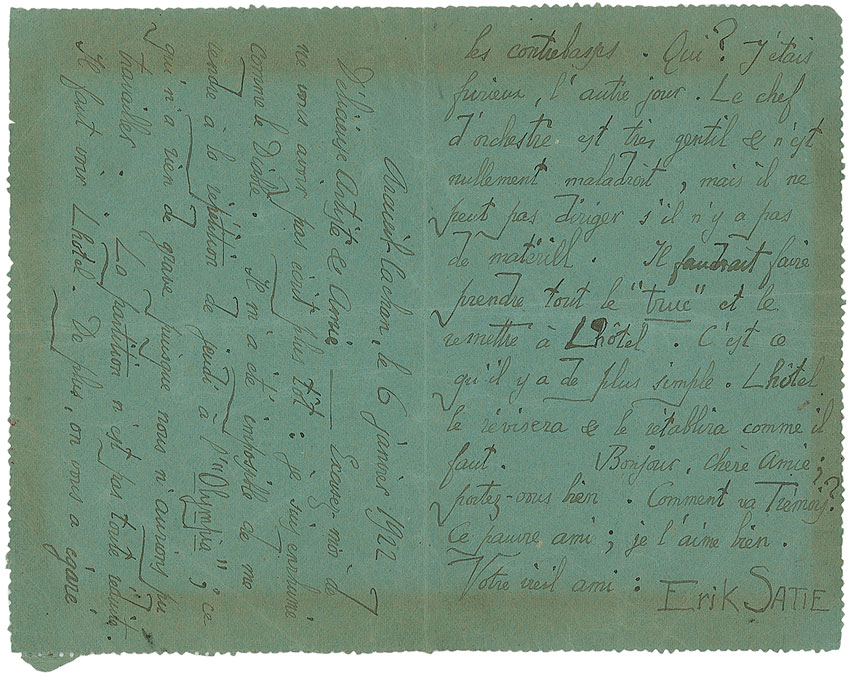 Arcueil-Cachan, le 6 janvier 1912
Délicieuse Artiste & Amie — Excusez-moi de
ne vous avoir pas écrit plus tôt : je suis enrhumé
comme le Diable. Il m'a été impossible de me
rendre à la répétition de jeudi à l'"Olympia" ; ce
qui n'a rien de grave puisque nous n'aurions pu
travailler. La partition n'est pas toute réduite.
Il faut voir Lhôtel. De plus, on vous a égaré
les contrebasses. Qui? J'étais
furieux, l'autre jour. Le chef
d'orchestre est très gentil & n'est
nullement maladroit, mais il ne
peut pas diriger s'il n'y a pas
de matériel. Il faudrait faire
prendre tout le "truc" et le
remettre à Lhôtel. C'est ce
qu'il y a de plus simple. Lhôtel
le révisera & le rétablira comme il
faut. Bonjour, chère Amie ;
portez-vous bien. Comment va Trémois?
Ce pauvre ami ; je l'aime bien.
Votre vieil ami : Erik SATIE